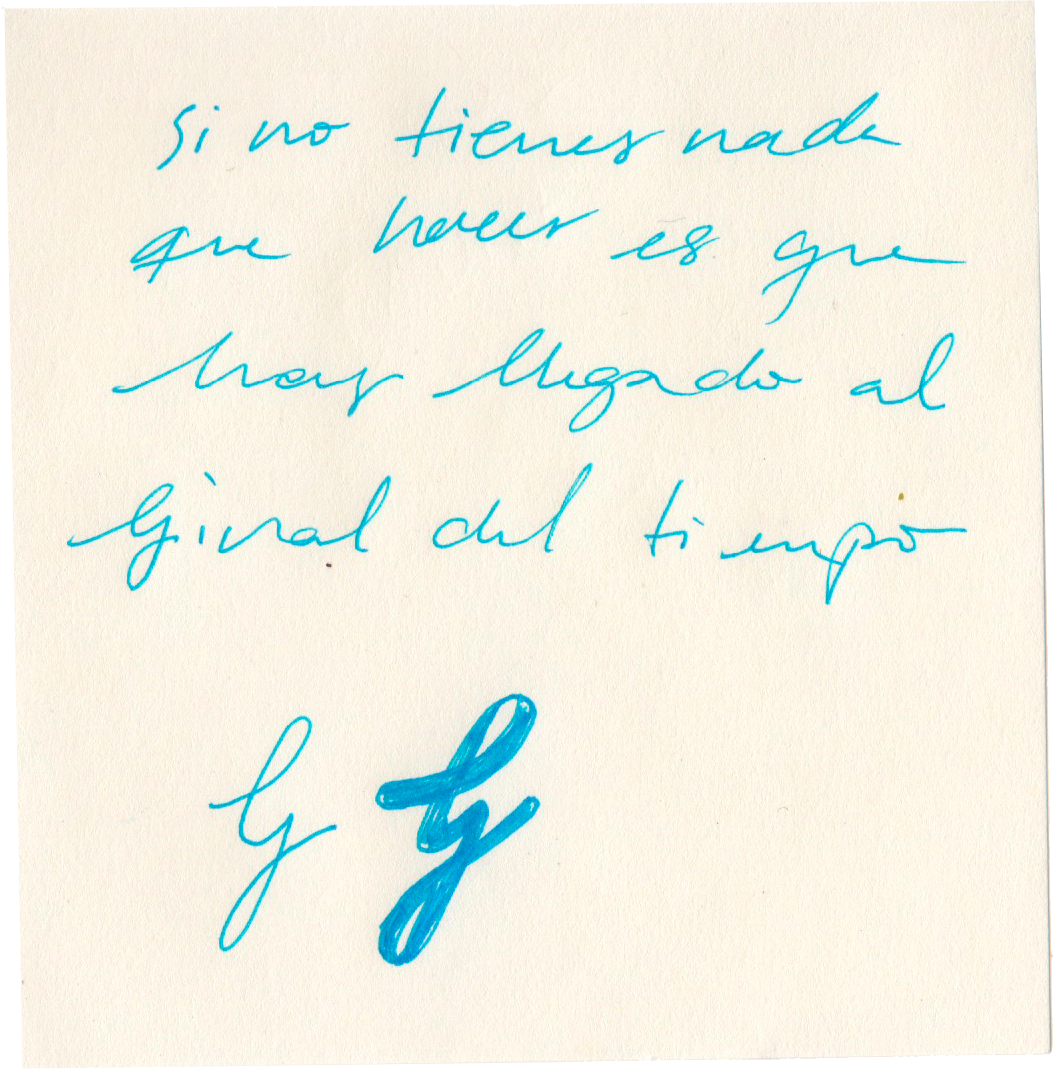 si no tienes nada
que hacer es que
has llegado al
final del tiempo